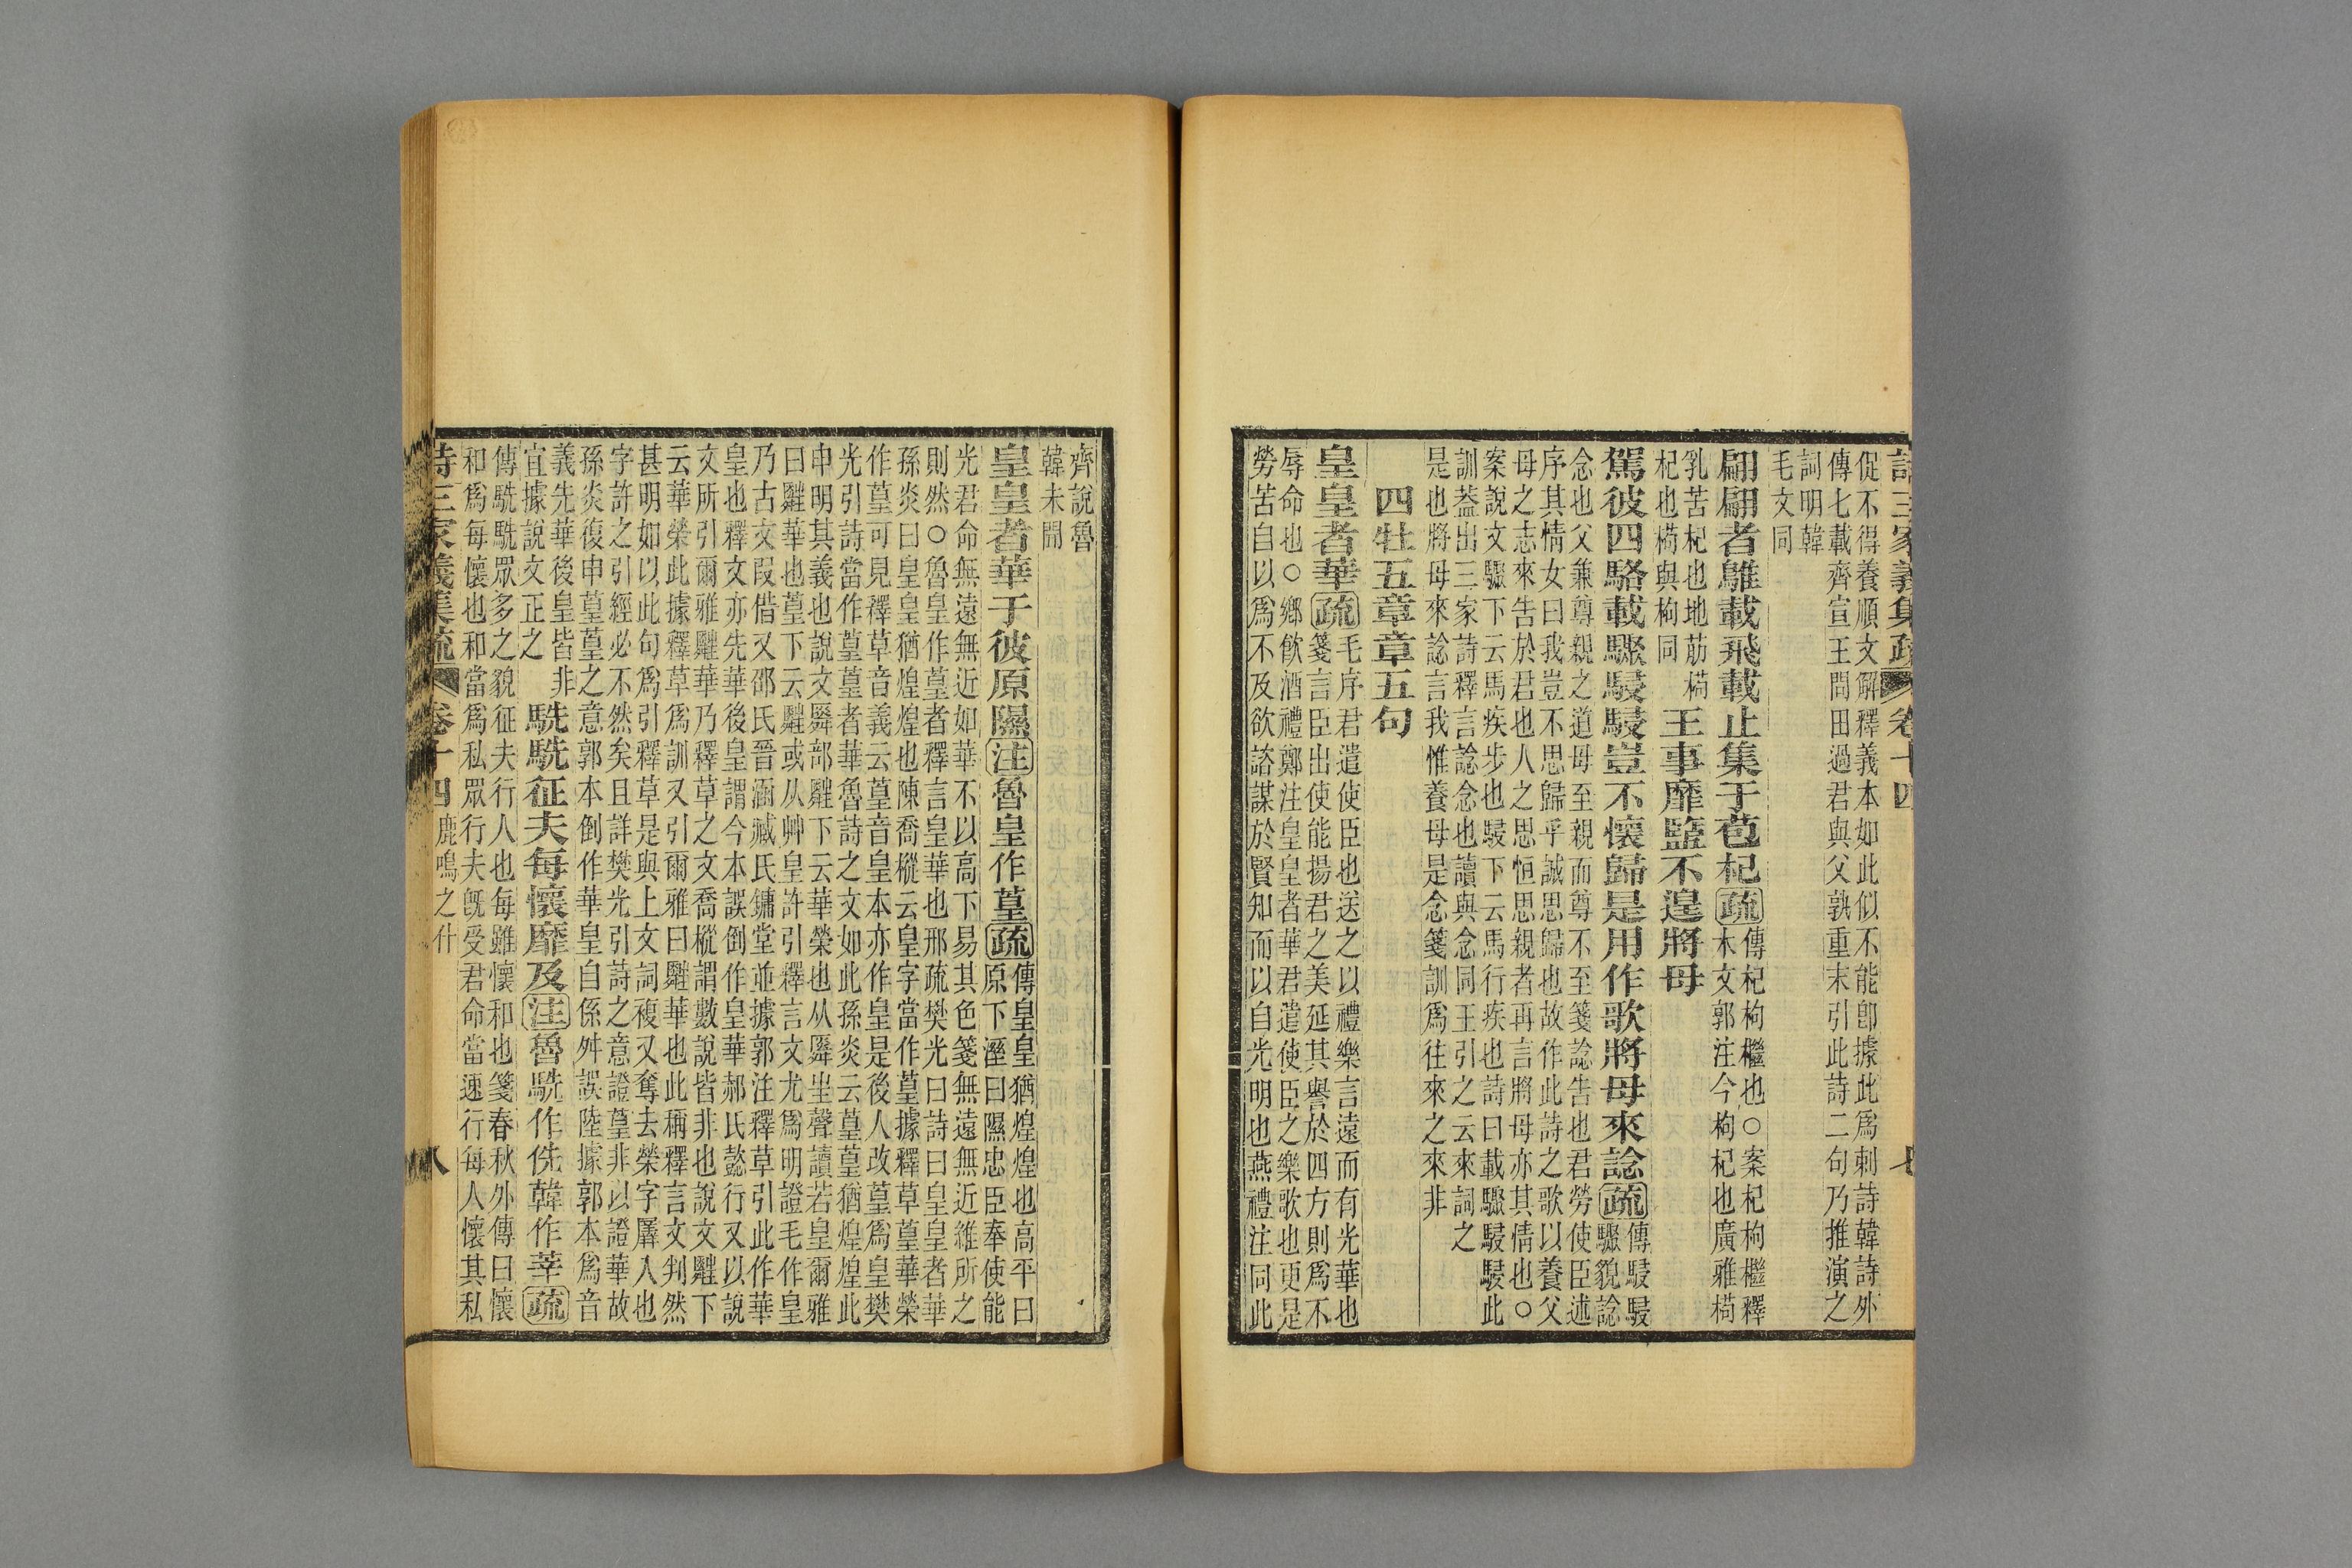 詩三家義集疏 卷十四 七
促不得養順文解釋義本如此似不能卽據此爲刺詩韓詩外
傳七載齊宣王問田過君與父孰重末引此詩二句乃推演之
詞明韓
毛文同
翩翩者鵻載飛載止集于苞杞疏傳杞枸檵也○案杞枸檵釋
木文郭注今枸杞也廣雅㮌
乳苦杞也地筋㮌
杞也㮌與枸同
王事靡盬不遑將母
駕彼四駱載驟駸駸豈不懷歸是用作歌將母來諗疏傳駸駸
驟貌諗
念也父兼尊親之道母至親而尊不至箋諗告也君勞使臣述
序其情女曰我豈不思歸乎誠思歸也故作此詩之歌以養父
母之志來告於君也人之思恒思親者再言將母亦其情也○
案說文驟下云馬疾步也駸下云馬行疾也詩曰載驟駸駸此
訓蓋出三家詩釋言諗念也讀與念同王引之云來詞之
是也將母來諗言我惟養母是念箋訓爲往來之來非
四牡五章章五句
皇皇者華疏毛序君遣使臣也送之以禮樂言遠而有光華也
箋言臣出使能揚君之美延其譽於四方則爲不
辱命也○鄉飲酒禮鄭注皇皇者華君遣使臣之樂歌也更是
勞苦自以爲不及欲諮謀於賢知而以自光明也燕禮注同此
齊說魯
韓未聞
皇皇者華于彼原隰注魯皇作葟疏傳皇皇猶煌煌也高平曰
原下溼曰隰忠臣奉使能
光君命無遠無近如華不以高下易其色箋無遠無近維所之
則然○魯皇作葟者釋言皇華也邢疏樊光曰詩曰皇皇者華
孫炎曰皇皇猶煌煌也陳喬樅云皇字當作葟據釋草葟華榮
作葟可見釋草音義云葟音皇本亦作皇是後人改葟爲皇樊
光引詩當作葟葟者華魯詩之文如此孫炎云葟葟猶煌煌此
申明其義也說文䑞部䑞下云華榮也从䑞㞷聲讀若皇爾雅
曰䑞華也葟下云䑞或从艸皇許引釋言文尤爲明證毛作皇
乃古文叚借又邵氏晉涵臧氏鏞堂並據郭注釋草引此作華
皇也釋文亦先華後皇謂今本誤倒作皇華郝氏懿行又以說
文所引爾雅䑞華乃釋草之文喬樅謂數說皆非也說文䑞下
云華榮此據釋草爲訓又引爾雅曰䑞華也此稱釋言文判然
甚明如以此句爲引釋草是與上文詞複又奪去榮字羼入也
字許之引經必不然矣且詳樊光引詩之意證葟非以證華故
孫炎復申葟葟之意郭本倒作華皇自係舛誤陸據郭本爲音
義先華後皇皆非
宜據說文正之
駪駪征夫每懷靡及注魯駪作侁韓作莘疏
傳駪駪眾多之貌征夫行人也每雖懷和也箋春秋外傳曰懷
和爲每懷也和當爲私眾行夫旣受君命當速行每人懷其私
詩三家義集疏 卷十四 鹿鳴之什 八